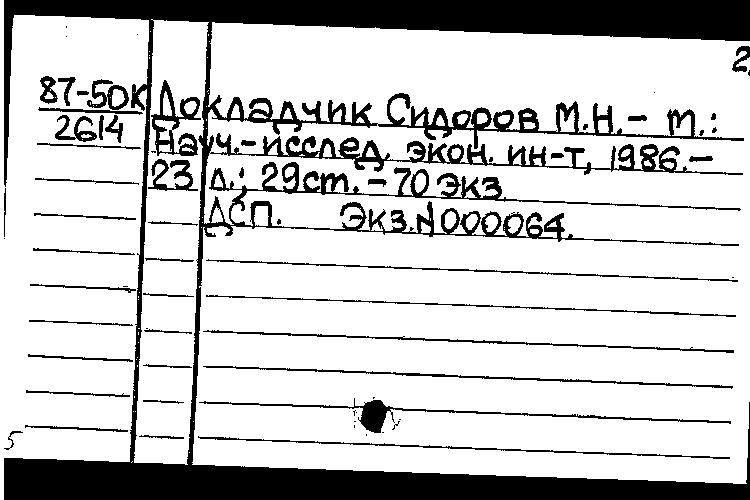 2
87-50К Докладчик Сидоров М.Н.- М.:
2614 Науч.-исслед. экон. ин-т, 1986.-
23 л.; 29ст. - 70 экз.
ДСП. Экз.N000064.
5